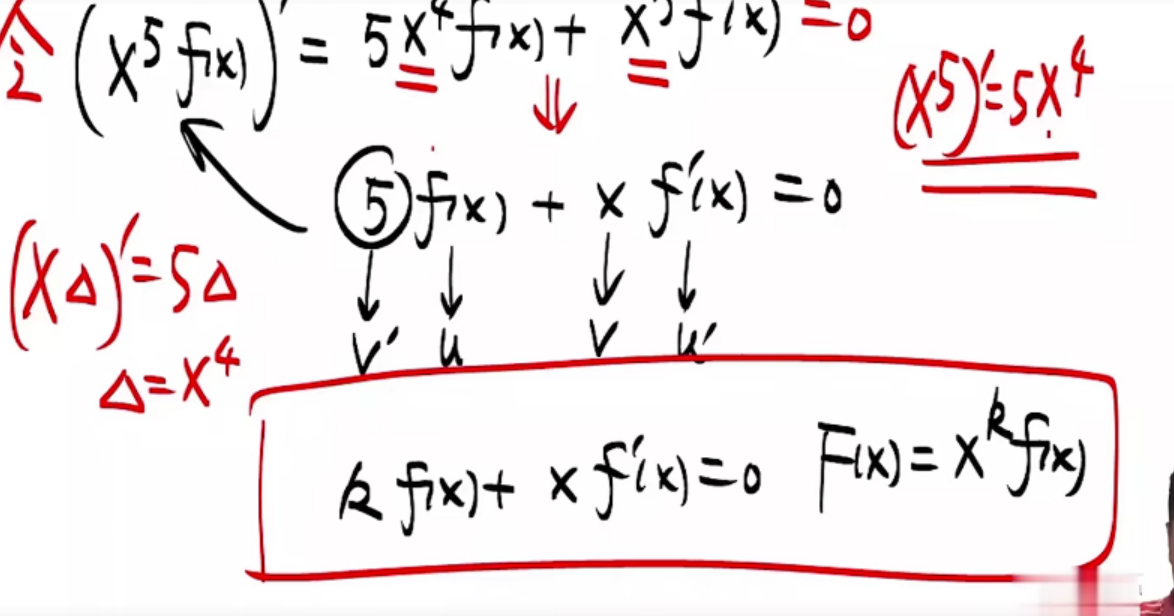 令 (x⁵f(x))′ = 5x⁴f(x) + x⁵f′(x) = 0
(x⁵)′=5x⁴
⇓
5f(x) + x f′(x) = 0
(x△)′=5△
v′ u v u′
△=x⁴
k f(x) + x f′(x) = 0 F(x) = xᵏf(x)